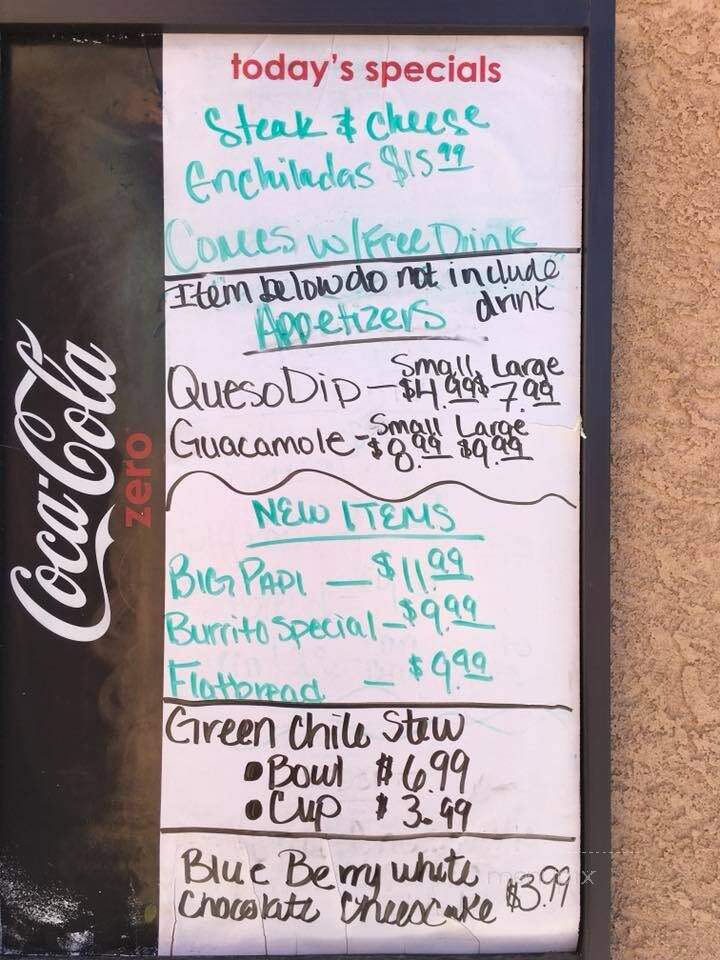 today's specials
Steak & cheese
Enchiladas $15.99
Comes w/Free Drink
Item below do not include
drink
Appetizers
Small Large
Queso Dip - $4.99 $7.99
Small Large
Guacamole - $8.99 $9.99
NEW ITEMS
BIG PAPI - $11.99
Burrito Special - $9.99
Flatbread - $9.99
Green Chile Stew
• Bowl $6.99
• Cup $3.99
Blue Berry white
Chocolate Cheescake $3.99
Coca-Cola
zero